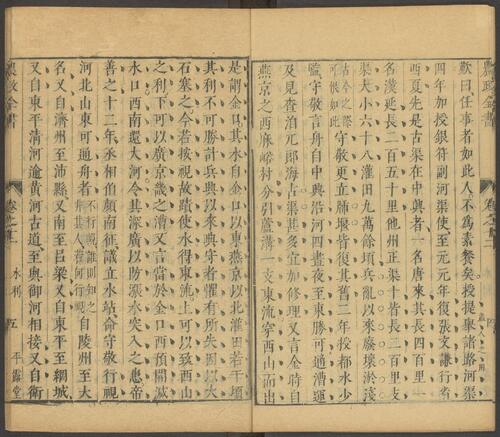 農政全書
卷之十二
歎曰任事者如此人不為素餐矣授提舉諸路河渠
四年加授銀符副河渠使至元元年從張文謙行省
西夏先是古渠在中興者一名唐來其長四百里一
名漢延長二百五十里他州正渠十皆長二百里支
渠大小六十八灌田九萬餘頃兵亂以來廢壞淤淺
古今之際可恨如此守敬更立牐堰皆復其舊二年授都水少
監守敬言舟自中興沿河四晝夜至東勝可通漕運
及見查泊兀郎海古渠甚多宜加修理又言金時自
燕京之西麻峪村分引蘆溝一支東流穿西山而出
是謂金口其水自金口以東燕京以北灌田若干頃
其利不可勝計兵興以來典守者懼有所失因以大
石塞之今若按視故蹟使水得東流上可以致西山
之利下可以廣京畿之漕又言當於金口西預開減
水口西南還大河令其深廣以防漲水突入之患帝
善之十二年丞相伯顏南征議立水站命守敬行視
河北山東可通舟者不行視誰則知之非其人雖何行視自陵州至大
名又自濟州至沛縣又南至呂梁又自東平至綱城
又自東平清河逾黃河古道至與御河相接又自衛
農政全書
卷之十二
水利
五
平露堂